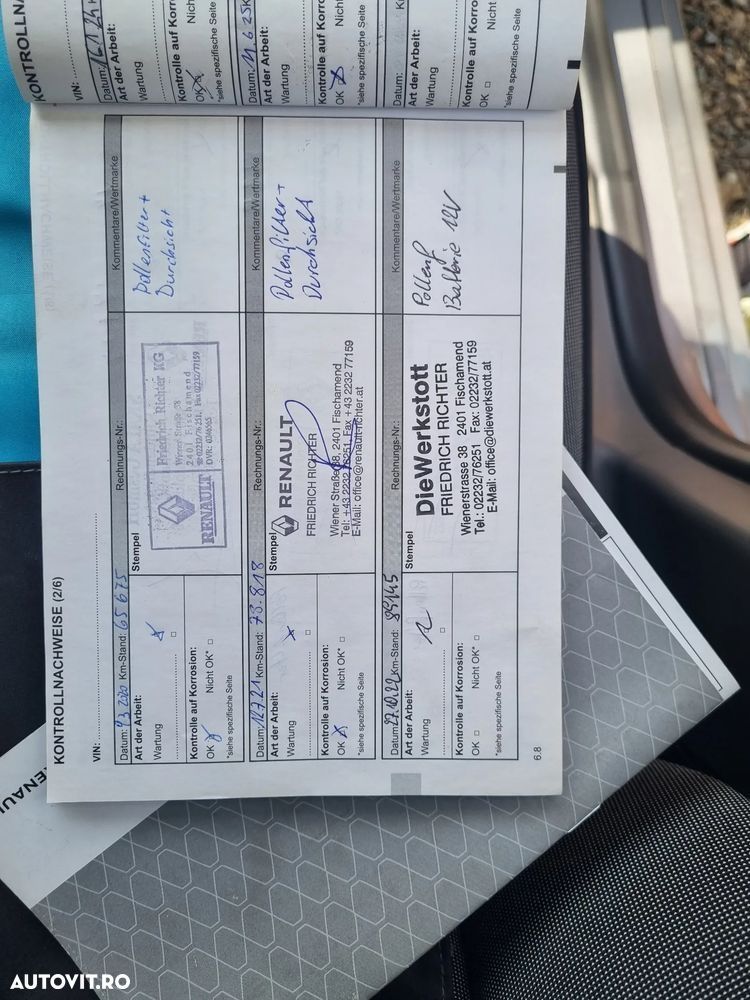 KONTROLLNACHWEISE (2/6)
VIN:
Datum: 9.3.2020 Km-Stand: 65 675
Rechnungs-Nr.:
Kommentare/Wertmarke
Art der Arbeit:
Wartung
Kontrolle auf Korrosion:
OK Nicht OK*
*siehe spezifische Seite
Stempel
RENAULT
Friedrich Richter KG
Wiener Straße 38
2401 Fischamend
☎02232/76251, Fax 02232/77159
Pollenfilter +
Durchsicht
Datum: 12.7.21 Km-Stand: 73.818
Rechnungs-Nr.:
Kommentare/Wertmarke
Art der Arbeit:
Wartung
Kontrolle auf Korrosion:
OK Nicht OK*
*siehe spezifische Seite
Stempel
RENAULT
FRIEDRICH RICHTER
Wiener Straße 38, 2401 Fischamend
Tel: +43 2232 76251, Fax +43 2232 77159
E-Mail: office@renault-richter.at
Pollenfilter +
Durchsicht
Datum: 27.10.22 Km-Stand: 89145
Rechnungs-Nr.:
Kommentare/Wertmarke
Art der Arbeit:
Wartung
Kontrolle auf Korrosion:
OK Nicht OK*
*siehe spezifische Seite
Stempel
DieWerkstott
FRIEDRICH RICHTER
Wienerstrasse 38 2401 Fischamend
Tel.: 02232/76251 Fax: 02232/77159
E-Mail: office@diewerkstott.at
Pollenf
Batterie 12V
6.8
KONTROLLNA
VIN:
Datum: 16.1.24
Art der Arbeit:
Wartung
Kontrolle auf Ko
OK Nich
*siehe spezifische Seite
Datum: 11.6.25
Art der Arbeit:
Wartung
Kontrolle auf Korro
OK Nicht
*siehe spezifische Seite
Datum:
Art der Arbeit:
Wartung
Kontrolle auf Kor
OK Nich
*siehe spezifische Seite
RENAUL
AUTOVIT.RO